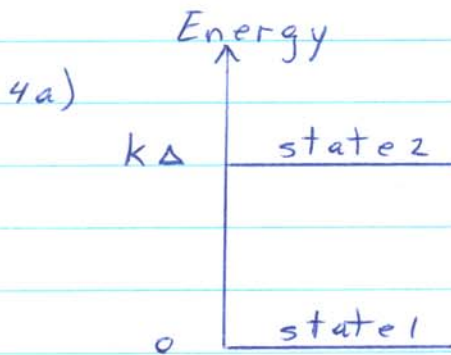 Energy
4a)
kΔ state 2
0 state 1